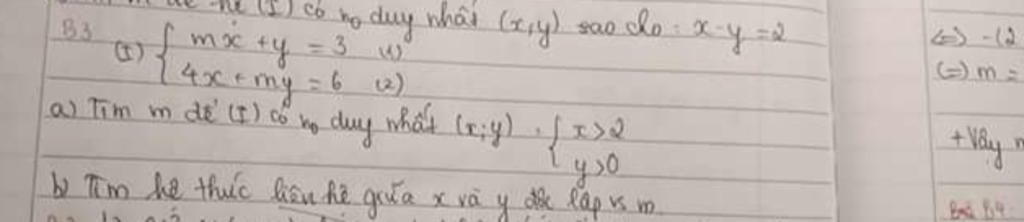 hệ (I) có n₀ duy nhất (x,y) sao cho : x-y=2
B3 (I) { mx + y = 3 (1)
4x + my = 6 (2)
a) Tìm m để (I) có n₀ duy nhất (x;y) . { x>2
y>0
b) Tìm hệ thức liên hệ giữa x và y độc lập vs m.
<=> -12
(=) m =
+ Vậy